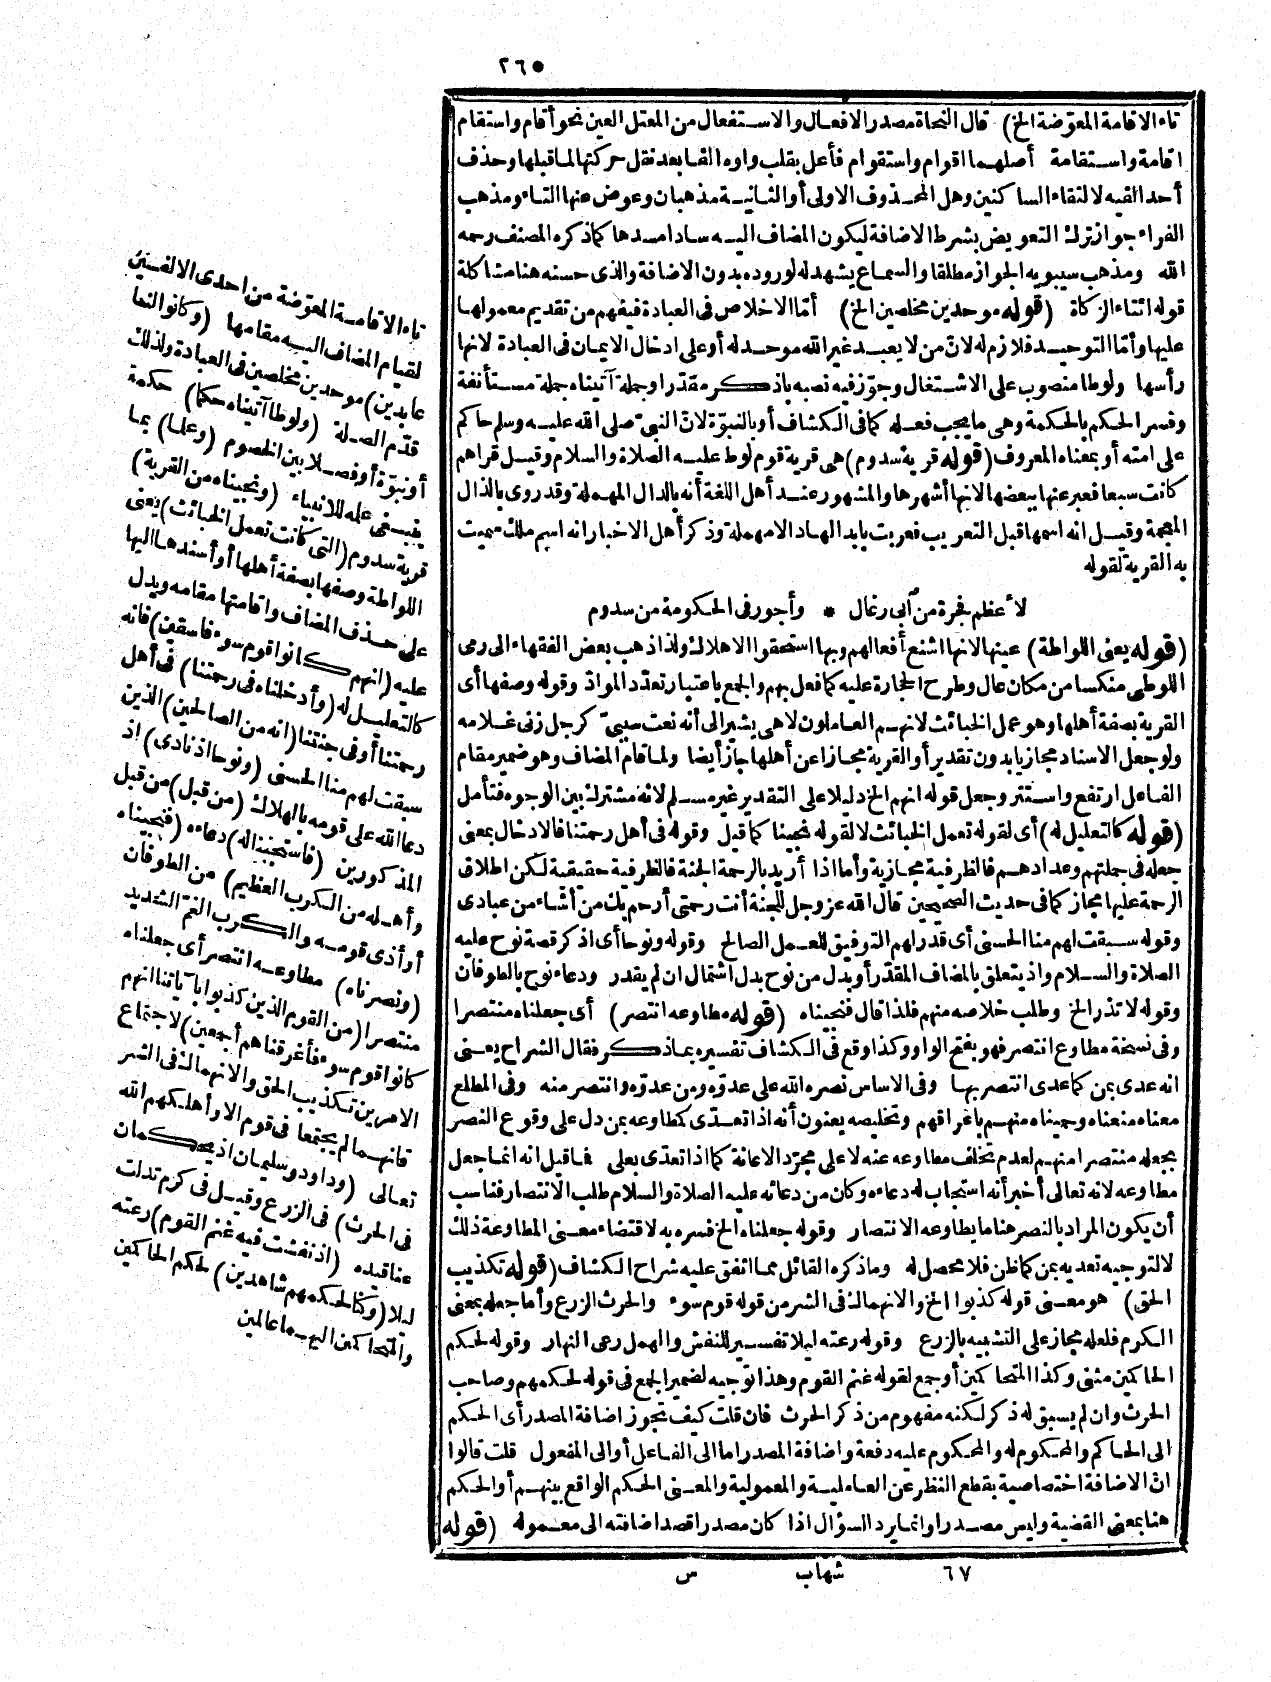 ٢٦٥
تاء الاقامة المعوّضة الخ) قال النحاة مصدر الافعال والاستفعال من المعتل العين نحو أقام واستقام
اقامة واستقامة أصلهما اقوام واستقوام فأعل بقلب واوه الفا بعد نقل حركتها لما قبلها وحذف
أحد الفيه لالتقاء الساكنين وهل المحذوف الاولى أو الثانية مذهبان وعوض عنها التاء ومذهب
الفراء جواز ترك التعويض بشرط الاضافة ليكون المضاف اليه سادا مسدها كما ذكره المصنف رحمه
الله ومذهب سيبويه الجواز مطلقا والسماع يشهد له لوروده بدون الاضافة والذى حسنه هنا مشاكلة
قوله ايتاء الزكاة (قوله موحدين مخلصين الخ) أمّا الاخلاص فى العبادة فيفهم من تقديم معمولها
عليها وأمّا التوحيد فلازم له لانّ من لا يعبد غير الله موحد له أو على ادخال الايمان فى العبادة لانها
رأسها ولوطا منصوب على الاشتغال وجوّز فيه نصبه باذكر مقدّرا وجملة آتيناه جملة مستأنفة
وفسر الحكم بالحكمة وهى ما يجب فعله كما فى الكشاف أو بالنبوّة لانّ النبىّ صلى الله عليه وسلم حاكم
على امته أو بمعناه المعروف (قوله قرية سدوم) هى قرية قوم لوط عليه الصلاة والسلام وقيل قراهم
كانت سبعا فعبر عنها ببعضها لانها أشهرها والمشهور عند أهل اللغة أنه بالدال المهملة وقد روى بالذال
المعجمة وقيل انه اسمها قبل التعريب فعربت بابدالها دالا مهملة وذكر أهل الاخبار انه اسم ملك سميت
به القرية لقوله
لأعظم فجرة من أبى رغال * وأجور فى الحكومة من سدوم
(قوله يعنى اللواطة) عينها لانها اشنع أفعالهم وبها استحقوا الاهلاك ولذا ذهب بعض الفقهاء الى رمى
اللوطى منكسا من مكان عال وطرح الحجارة عليه كما فعل بهم والجمع باعتبار تعدّد الموادّ وقوله وصفها أى
القرية بصفة أهلها وهو عمل الخبائث لانهم العاملون لا هى يشير الى أنه نعت سببىّ كرجل زنى غلامه
ولو جعل الاسناد مجازيا بدون تقدير أو القرية مجازا عن أهلها جاز أيضا ولما قام المضاف وهو ضمير مقام
الفاعل ارتفع واستتر وجعل قوله انهم الخ دليلا على التقدير غير مسلم لانه مشترك بين الوجوه فتأمل
(قوله كالتعليل له) أى لقوله تعمل الخبائث لا لقوله نجينا كما قيل وقوله فى أهل رحمتنا فالادخال بمعنى
جعله فى جملتهم وعدادهم فالظرفية مجازية وأما اذا أريد بالرحمة الجنة فالظرفية حقيقية لكن اطلاق
الرحمة عليها مجاز كما فى حديث الصحيحين قال الله عز وجل للجنة أنت رحمتى أرحم بك من أشاء من عبادى
وقوله سبقت لهم منا الحسنى أى قدر لهم التوفيق للعمل الصالح وقوله ونوحا أى اذكر قصة نوح عليه
الصلاة والسلام واذ يتعلق بالمضاف المقدّر أو بدل من نوح بدل اشتمال ان لم يقدر ودعاء نوح بالطوفان
وقوله لا تذر الخ وطلب خلاصه منهم فلذا قال فنجيناه (قوله مطاوعه انتصر) أى جعلناه منتصرا
وفى نسخة مطاوع انتصر فهو بفتح الواو وكذا وقع فى الكشاف تفسيره بما ذكر فقال الشراح يعنى
انه عدى بمن كما عدى انتصر بها وفى الاساس نصره الله على عدوّه ومن عدوّه وانتصر منه وفى المطلع
معناه منعناه وحميناه منهم باغراقهم وتخليصه يعنون أنه اذا تعدّى كمطاوعه بمن دل على وقوع النصر
بجعله منتصرا منهم لعدم تخلف مطاوعه عنه لا على مجرّد الاعانة كما اذا تعدّى بعلى فما قيل انه انما جعل
مطاوعه لانه تعالى أخبر أنه استجاب له دعاءه وكان من دعائه عليه الصلاة والسلام طلب الانتصار فناسب
أن يكون المراد بالنصر هنا ما يطاوعه الانتصار وقوله جعلناه الخ فسره به لاقتضاء معنى المطاوعة ذلك
لا لتوجيه تعديه بمن كما ظن فلا محصل له وما ذكره القائل مما اتفق عليه شراح الكشاف (قوله تكذيب
الحق) هو معنى قوله كذبوا الخ والانهماك فى الشر من قوله قوم سوء والحرث الزرع وأما جعله بمعنى
الكرم فلعله مجاز على التشبيه بالزرع وقوله رعته ليلا تفسير للنفش والهمل رعى النهار وقوله لحكم
الحاكمين مثنى وكذا المتحاكمين أو جمع لقوله غنم القوم وهذا توجيه لضمير الجمع فى قوله لحكمهم وصاحب
الحرث وان لم يسبق له ذكر لكنه مفهوم من ذكر الحرث فان قلت كيف تجوز اضافة المصدر أى الحكم
الى الحاكم والمحكوم له والمحكوم عليه دفعة واضافة المصدر اما الى الفاعل أو الى المفعول قلت قالوا
انّ الاضافة اختصاصية بقطع النظر عن العاملية والمعمولية والمعنى الحكم الواقع بينهم أو الحكم
هنا بمعنى القضية وليس مصدرا وانما يرد السؤال اذا كان مصدرا قصد اضافته الى معموله (قوله
تاء الاقامة المعوّضة من احدى الالفين
لقيام المضاف اليه مقامها (وكانوا لنا
عابدين) موحدين مخلصين فى العبادة ولذلك
قدّم الصلة (ولوطا آتيناه حكما) حكمة
أو نبوّة أو فصلا بين الخصوم (وعلما) بما
ينبغى علمه للانبياء (ونجيناه من القرية)
قرية سدوم (التى كانت تعمل الخبائث) يعنى
اللواطة وصفها بصفة أهلها أو أسندها اليها
على حذف المضاف واقامتها مقامه ويدل
عليه (انهم كانوا قوم سوء فاسقين) فانه
كالتعليل له (وأدخلناه فى رحمتنا) فى أهل
رحمتنا أو فى جنتنا (انه من الصالحين) الذين
سبقت لهم منا الحسنى (ونوحا اذ نادى) اذ
دعا الله على قومه بالهلاك (من قبل) من قبل
المذكورين (فاستجبنا له) دعاءه (فنجيناه
وأهله من الكرب العظيم) من الطوفان
أو أذى قومه والكرب الغمّ الشديد
(ونصرناه) مطاوعه انتصر أى جعلناه
منتصرا (من القوم الذين كذبوا بآياتنا انهم
كانوا قوم سوء فأغرقناهم أجمعين) لاجتماع
الامرين تكذيب الحق والانهماك فى الشر
فانهما لم يجتمعا فى قوم الا وأهلكهم الله
تعالى (وداود وسليمان اذ يحكمان
فى الحرث) فى الزرع وقيل فى كرم تدلت
عناقيده (اذ نفشت فيه غنم القوم) رعته
ليلا (وكنا لحكمهم شاهدين) لحكم الحاكمين
والمتحاكمين اليهما عالمين
٦٧ شهاب س